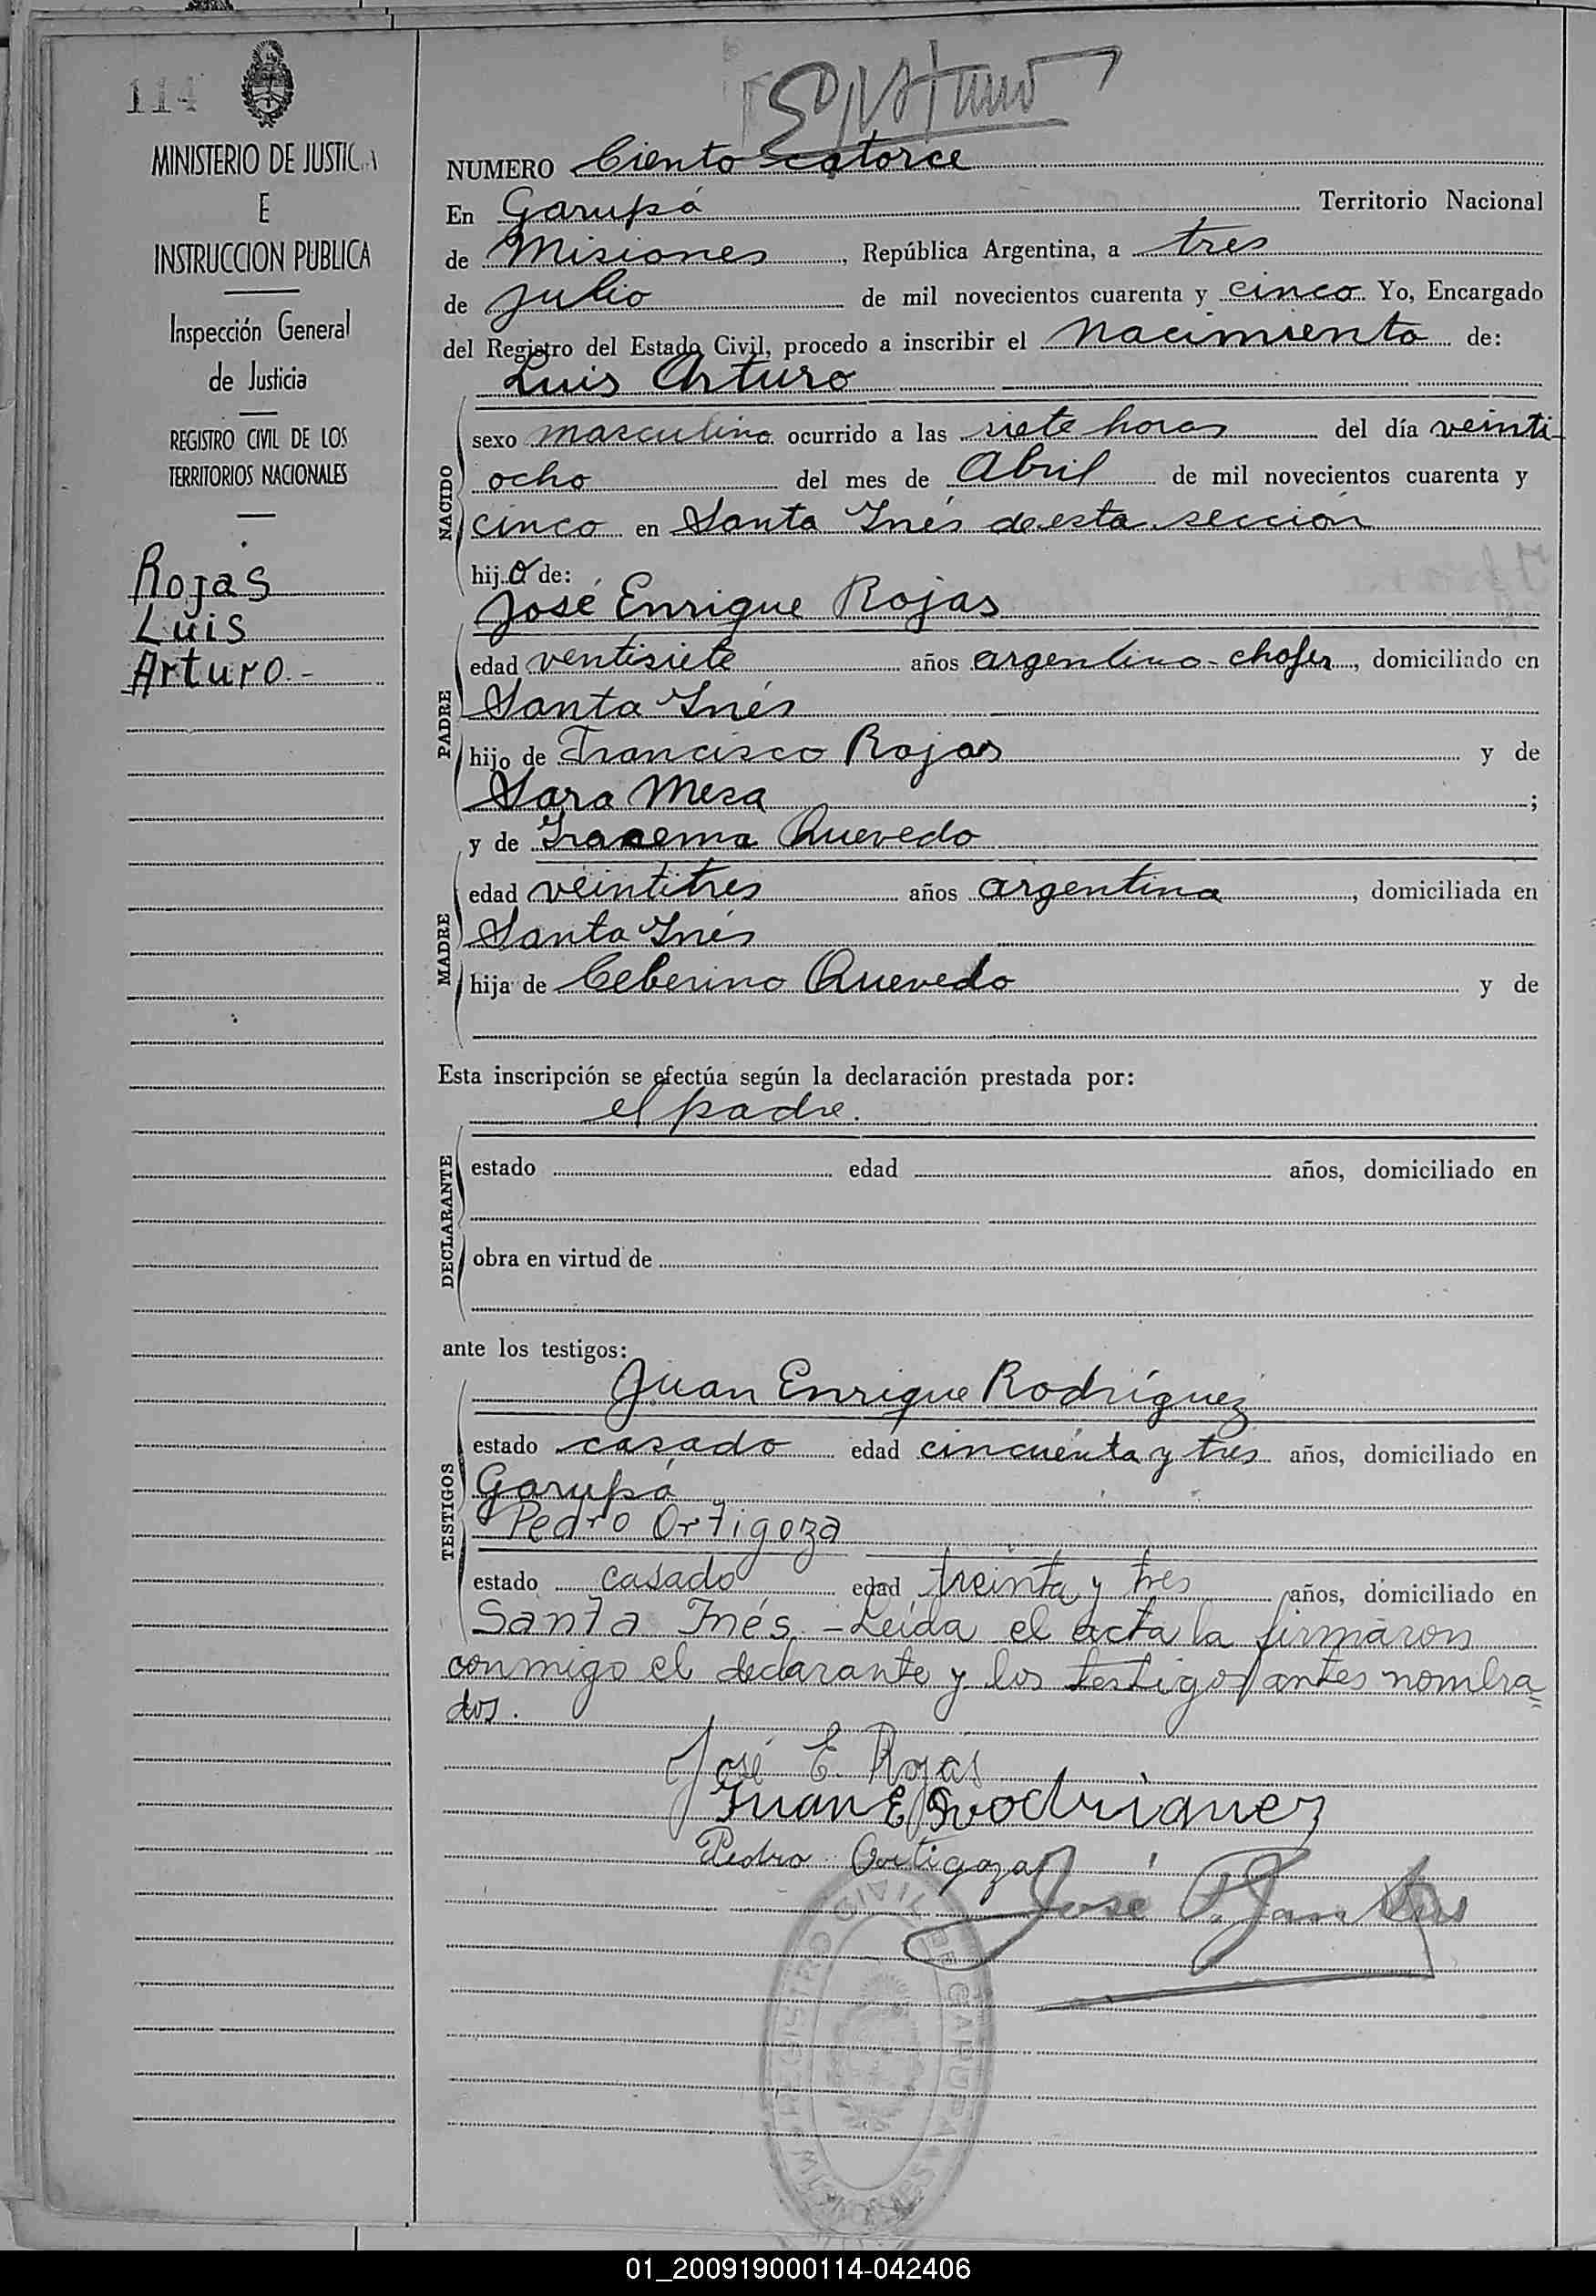 114
MINISTERIO DE JUSTICIA
E
INSTRUCCION PUBLICA
Inspección General
de Justicia
REGISTRO CIVIL DE LOS
TERRITORIOS NACIONALES
Rojas
Luis
Arturo.-
NUMERO Ciento catorce
En Garupá Territorio Nacional
de Misiones, República Argentina, a tres
de julio de mil novecientos cuarenta y cinco Yo, Encargado
del Registro del Estado Civil, procedo a inscribir el nacimiento de:
Luis Arturo
NACIDO
sexo masculino ocurrido a las siete horas del día veinti-
ocho del mes de Abril de mil novecientos cuarenta y
cinco en Santa Inés de esta sección
hijo de:
José Enrique Rojas
PADRE
edad ventisiete años argentino-chofer, domiciliado en
Santa Inés
hijo de Francisco Rojas y de
Sara Mesa ;
y de Iracema Quevedo
MADRE
edad veintitres años argentina, domiciliada en
Santa Inés
hija de Ceberino Quevedo y de
Esta inscripción se efectúa según la declaración prestada por:
el padre.
DECLARANTE
estado edad años, domiciliado en
obra en virtud de
ante los testigos:
Juan Enrique Rodríguez
TESTIGOS
estado casado edad cincuenta y tres años, domiciliado en
Garupá
Pedro Ortigoza
estado casado edad treinta y tres años, domiciliado en
Santa Inés.-Leída el acta la firmaron
conmigo el declarante y los testigos antes nombra=
dos.
José E. Rojas
Juan E Rodriguez
Pedro Ortigoza
José
REGISTRO CIVIL DE GARUPA
MISIONES
01_200919000114-042406